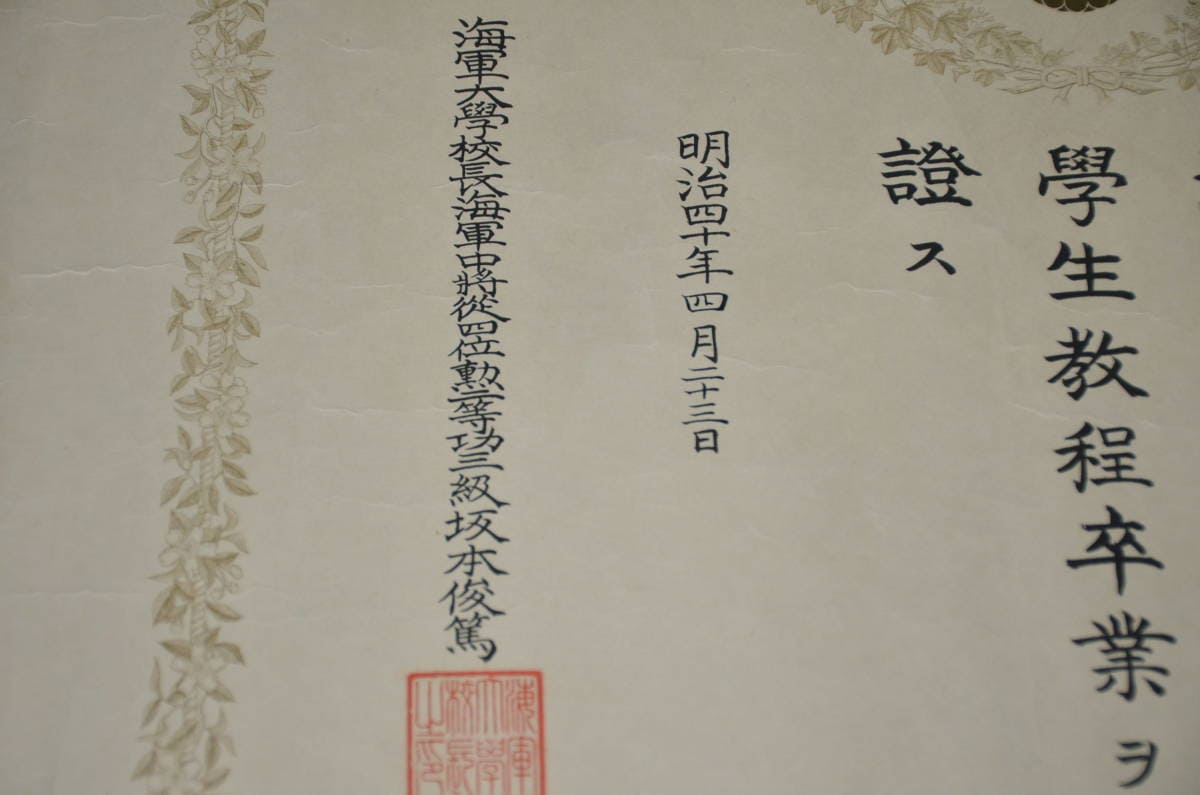 學生教程卒業ヲ
證ス
明治四十年四月二十三日
海軍大學校長海軍中將從四位勲二等功三級坂本俊篤
海軍大學校長之印